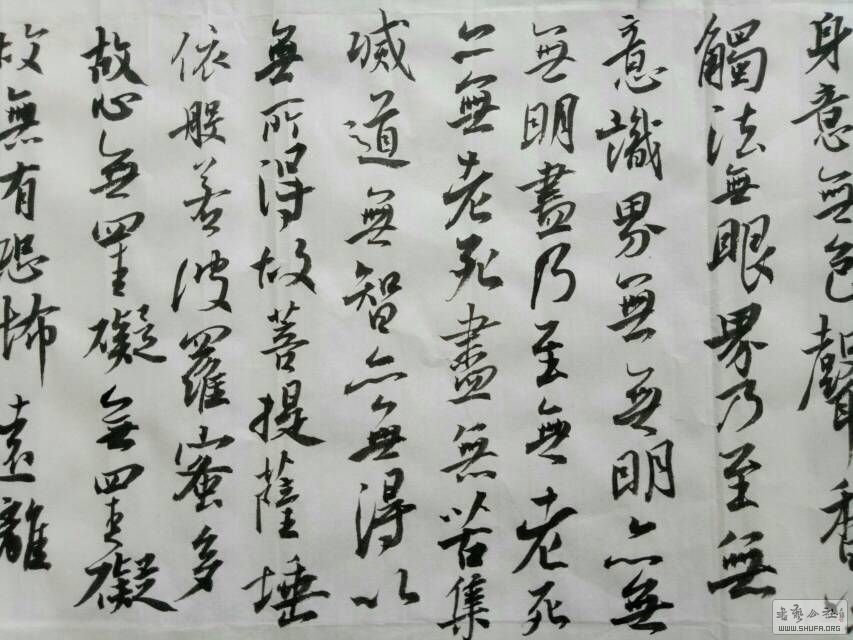 身意無色聲香
觸法無眼界乃至無
意識界無無明亦無
無明盡乃至無老死
亦無老死盡無苦集
滅道無智亦無得以
無所得故菩提薩埵
依般若波羅蜜多
故心無罣礙無罣礙
故無有恐怖遠離
WWW.SHUFA.ORG